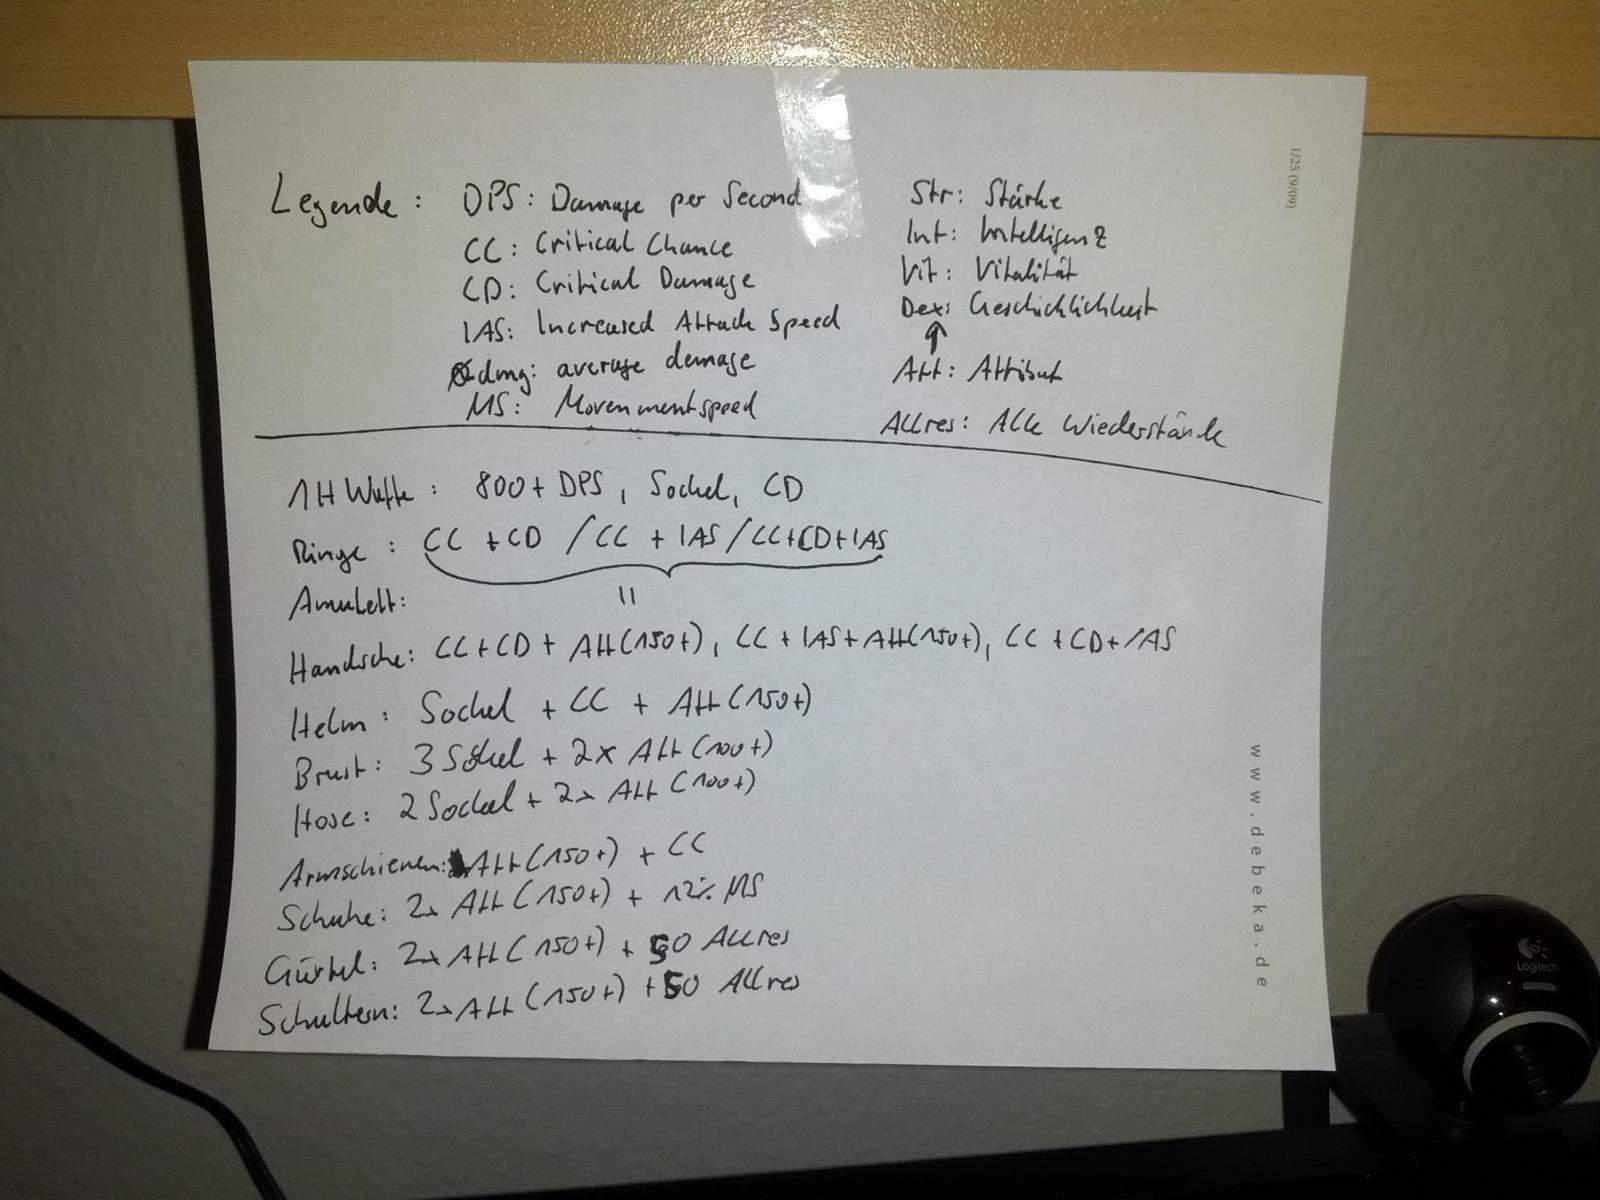 1/25 (9/09)
Legende: DPS: Damage per Second
CC: Critical Chance
CD: Critical Damage
IAS: Increased Attack Speed
Ødmg: average damage
MS: Movenmentspeed
Str: Stärke
Int: Intelligenz
Vit: Vitalität
Dex: Geschicklichkeit
↑
Att: Attribut
Allres: Alle Wiederstände
1H Waffe: 800+ DPS, Sockel, CD
Ringe: CC + CD / CC + IAS / CC+CD+IAS
Amulett: "
Handsche: CC+CD + Att(150+), CC + IAS+Att(150+), CC + CD+IAS
Helm: Sockel + CC + Att(150+)
Brust: 3 Sockel + 2x Att(100+)
Hose: 2 Sockel + 2x Att(100+)
Armschienen: Att(150+) + CC
Schuhe: 2x Att(150+) + 12% MS
Gürtel: 2x Att(150+) + 50 Allres
Schultern: 2x Att(150+) +50 Allres
www.debeka.de
Logitech